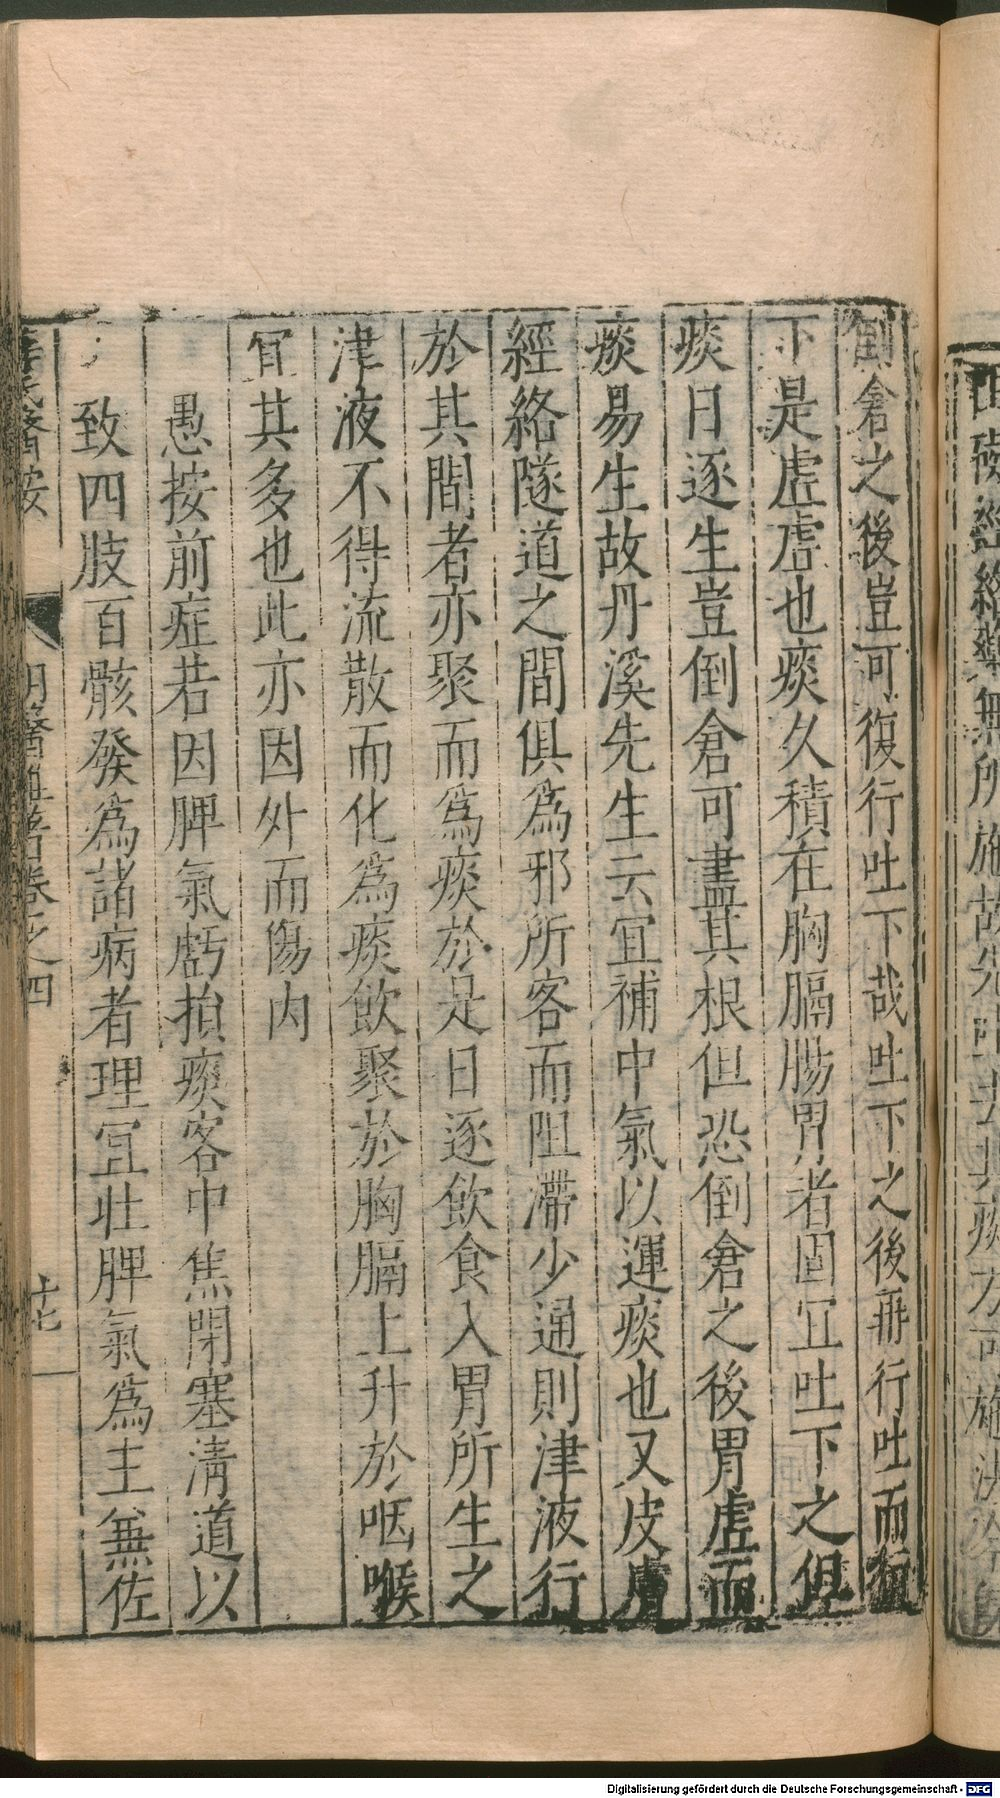 倒倉之後豈可復行吐下哉吐下之後再行吐而頻
下是虛虛也痰久積在胸膈腸胃者固宜吐下之但
痰日逐生豈倒倉可盡其根但恐倒倉之後胃虛而
痰易生故丹溪先生云宜補中氣以運痰也又皮膚
經絡隧道之間俱為邪所客而阻滯少通則津液行
於其間者亦聚而為痰於是日逐飲食入胃所生之
津液不得流散而化為痰飲聚於胸膈上升於咽喉
宜其多也此亦因外而傷內
愚按前症若因脾氣虧損痰客中焦閉塞清道以
致四肢百骸發為諸病者理宜壯脾氣為主兼佐
薛氏醫按
明醫雜著卷之四
十七
經絡藥無所施故先吐去其痰方可施決
Digitalisierung gefördert durch die Deutsche Forschungsgemeinschaft - DFG